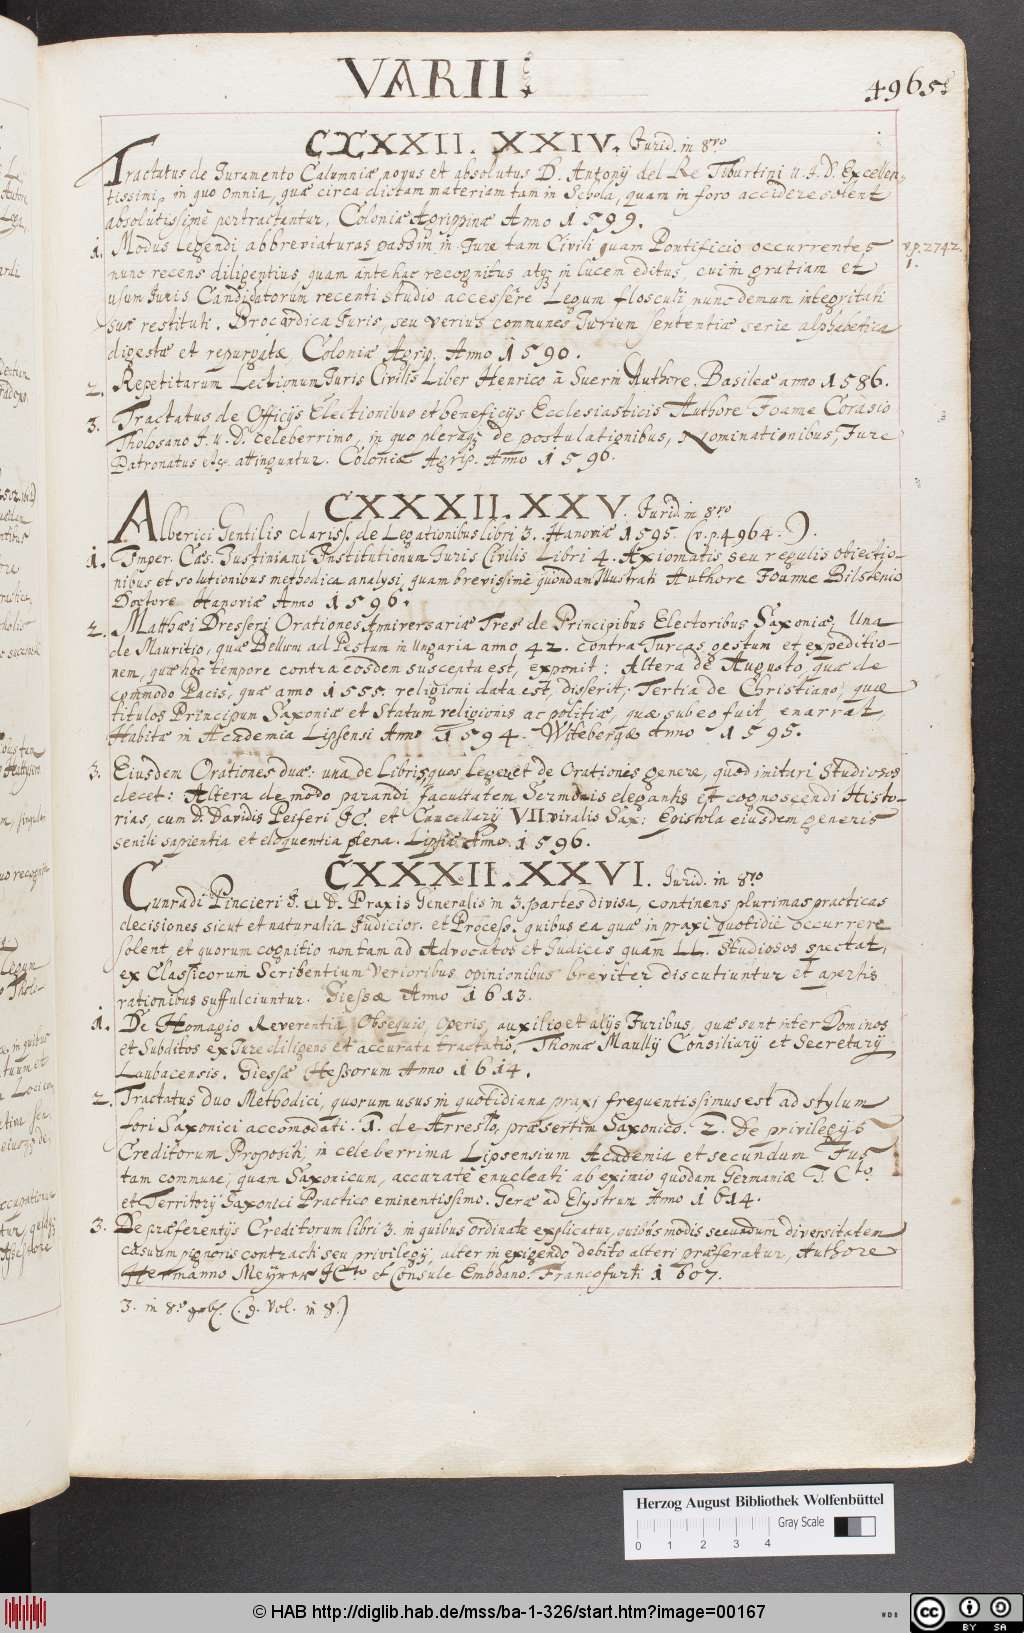 VARII.
4965.
CLXXXII. XXIV. Jurid. in 8vo
Tractatus de Juramento Calumniæ novus et absolutus D. Antonij del Re Tiburtini U. J. D. Excellen-
tissimi, in quo omnia, quæ circa dictam materiam tam in Schola, quam in foro accidere solent
absolutissimè pertractantur, Coloniæ Agrippinæ Anno 1599.
1. Modus legendi abbreviaturas passim in Jure tam Civili quam Pontificio occurrentes
v.p. 2742.
1.
nunc recens diligentius quam antehac recognitus atq; in lucem editus, cui in gratiam et
usum Juris Candidatorum recenti studio accessêre Legum flosculi nunc demum integritati
suæ restituti. Brocardica Juris, seu verius communes Jurium sententiæ serie alphabetica
digestæ et repurgatæ Coloniæ Agrip. Anno 1590.
2. Repetitarum Lectionum Juris Civilis Liber Henrico à Suerin Authore. Basileæ anno 1586.
3. Tractatus de Officijs Electionibus et beneficijs Ecclesiasticis Authore Joanne Coràsio
Tholosano J. U. D. celeberrimo, in quo pleraq; de postulationibus, Nominationibus, Jure
Patronatus etc. attinguntur. Coloniæ Agrip. Anno 1596.
CXXXII. XXV. Jurid. in 8vo
Alberici Gentilis clariss. de Legationibus libri 3. Hanoviæ 1595. (v. p. 4964.).
1. Imper. Cæs. Justiniani Institutionum Juris Civilis Libri 4. Axiomatis seu regulis obiectio-
nibus et solutionibus methodica analysi, quam brevissimè quondam Illustrati Authore Joanne Bilstenio
Doctore Hanoviæ Anno 1596.
2. Matthæi Dresseri Orationes Anniversariæ Tres de Principibus Electoribus Saxoniæ, Una
de Mauritio, quæ Bellum ad Pestum in Ungaria anno 42. contra Turcas gestum et expeditio-
nem, quæ hoc tempore contra eosdem suscepta est, exponit: Altera de Augusto, quæ de
commodo Pacis, quæ anno 1555. religioni data est, disserit, Tertia de Christiano, quæ
titulos Principum Saxoniæ et Statum religionis ac politiæ, quæ sub eo fuit, enarrat,
Habitæ in Academia Lipsensi Anno 1594. Witebergæ Anno 1595.
3. Eiusdem Orationes duæ: una de Libris, quos legere et de Orationis genere, quod imitari Studiosos
decet: Altera de modo parandi facultatem Sermonis elegantis et cognoscendi Histo-
rias, cum D. Davidis Peiferi JC. et Cancellarij VII viralis Sax: Epistola eiusdem generis
senili sapientia et eloquentia plena. Lipsiæ Anno 1596.
CXXXII. XXVI. Jurid. in 8vo
Cunradi Pincieri J. U. D. Praxis Generalis in 3. partes divisa, continens plurimas practicas
decisiones sicut et naturalia Judicior. et Process. quibus ea quæ in praxi quotidiè occurrere
solent et quorum cognitio non tam ad Advocatos et Judices quam LL. Studiosos spectat,
ex Classicorum Scribentium verioribus opinionibus breviter discutiuntur et apertis
rationibus suffulciuntur. Giessæ Anno 1613.
1. De Homagio Reverentia Obsequio, Operis, auxilio et alijs Juribus, quæ sunt inter Dominos
et Subditos ex Jure diligens et accurata tractatio, Thomæ Maullij Consiliarij et Secretarij
Laubacensis. Giessæ Hessorum Anno 1614.
2. Tractatus duo Methodici, quorum usus in quotidiana praxi frequentissimus est ad stylum
fori Saxonici accomodati. 1. de Arresto, præsertim Saxonico. 2. De privilegijs
Creditorum Propositi, in celeberrima Lipsensium Academia et secundum Jus
tam commune, quam Saxonicum, accuratè enucleati ab eximio quodam Germaniæ J. Cto
et Territorij Saxonici Practico eminentissimo. Geræ ad Elystrum Anno 1614.
3. De præferentijs Creditorum libri 3. in quibus ordinate explicatur, quibus modis secundum diversitatem
casuum pignoris contracti seu privilegij, alter in exigendo debito alteri præferatur, Authore
Hermanno Meyero JCto et Consule Embdano. Francofurti 1607.
3. in 8vo (. 9. Vol. in 8.)
Herzog August Bibliothek Wolfenbüttel
Gray Scale
0 1 2 3 4
© HAB http://diglib.hab.de/mss/ba-1-326/start.htm?image=00167
WDB
cc BY SA